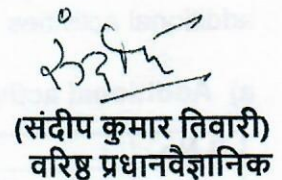 (संदीप कुमार तिवारी)
वरिष्ठ प्रधानवैज्ञानिक